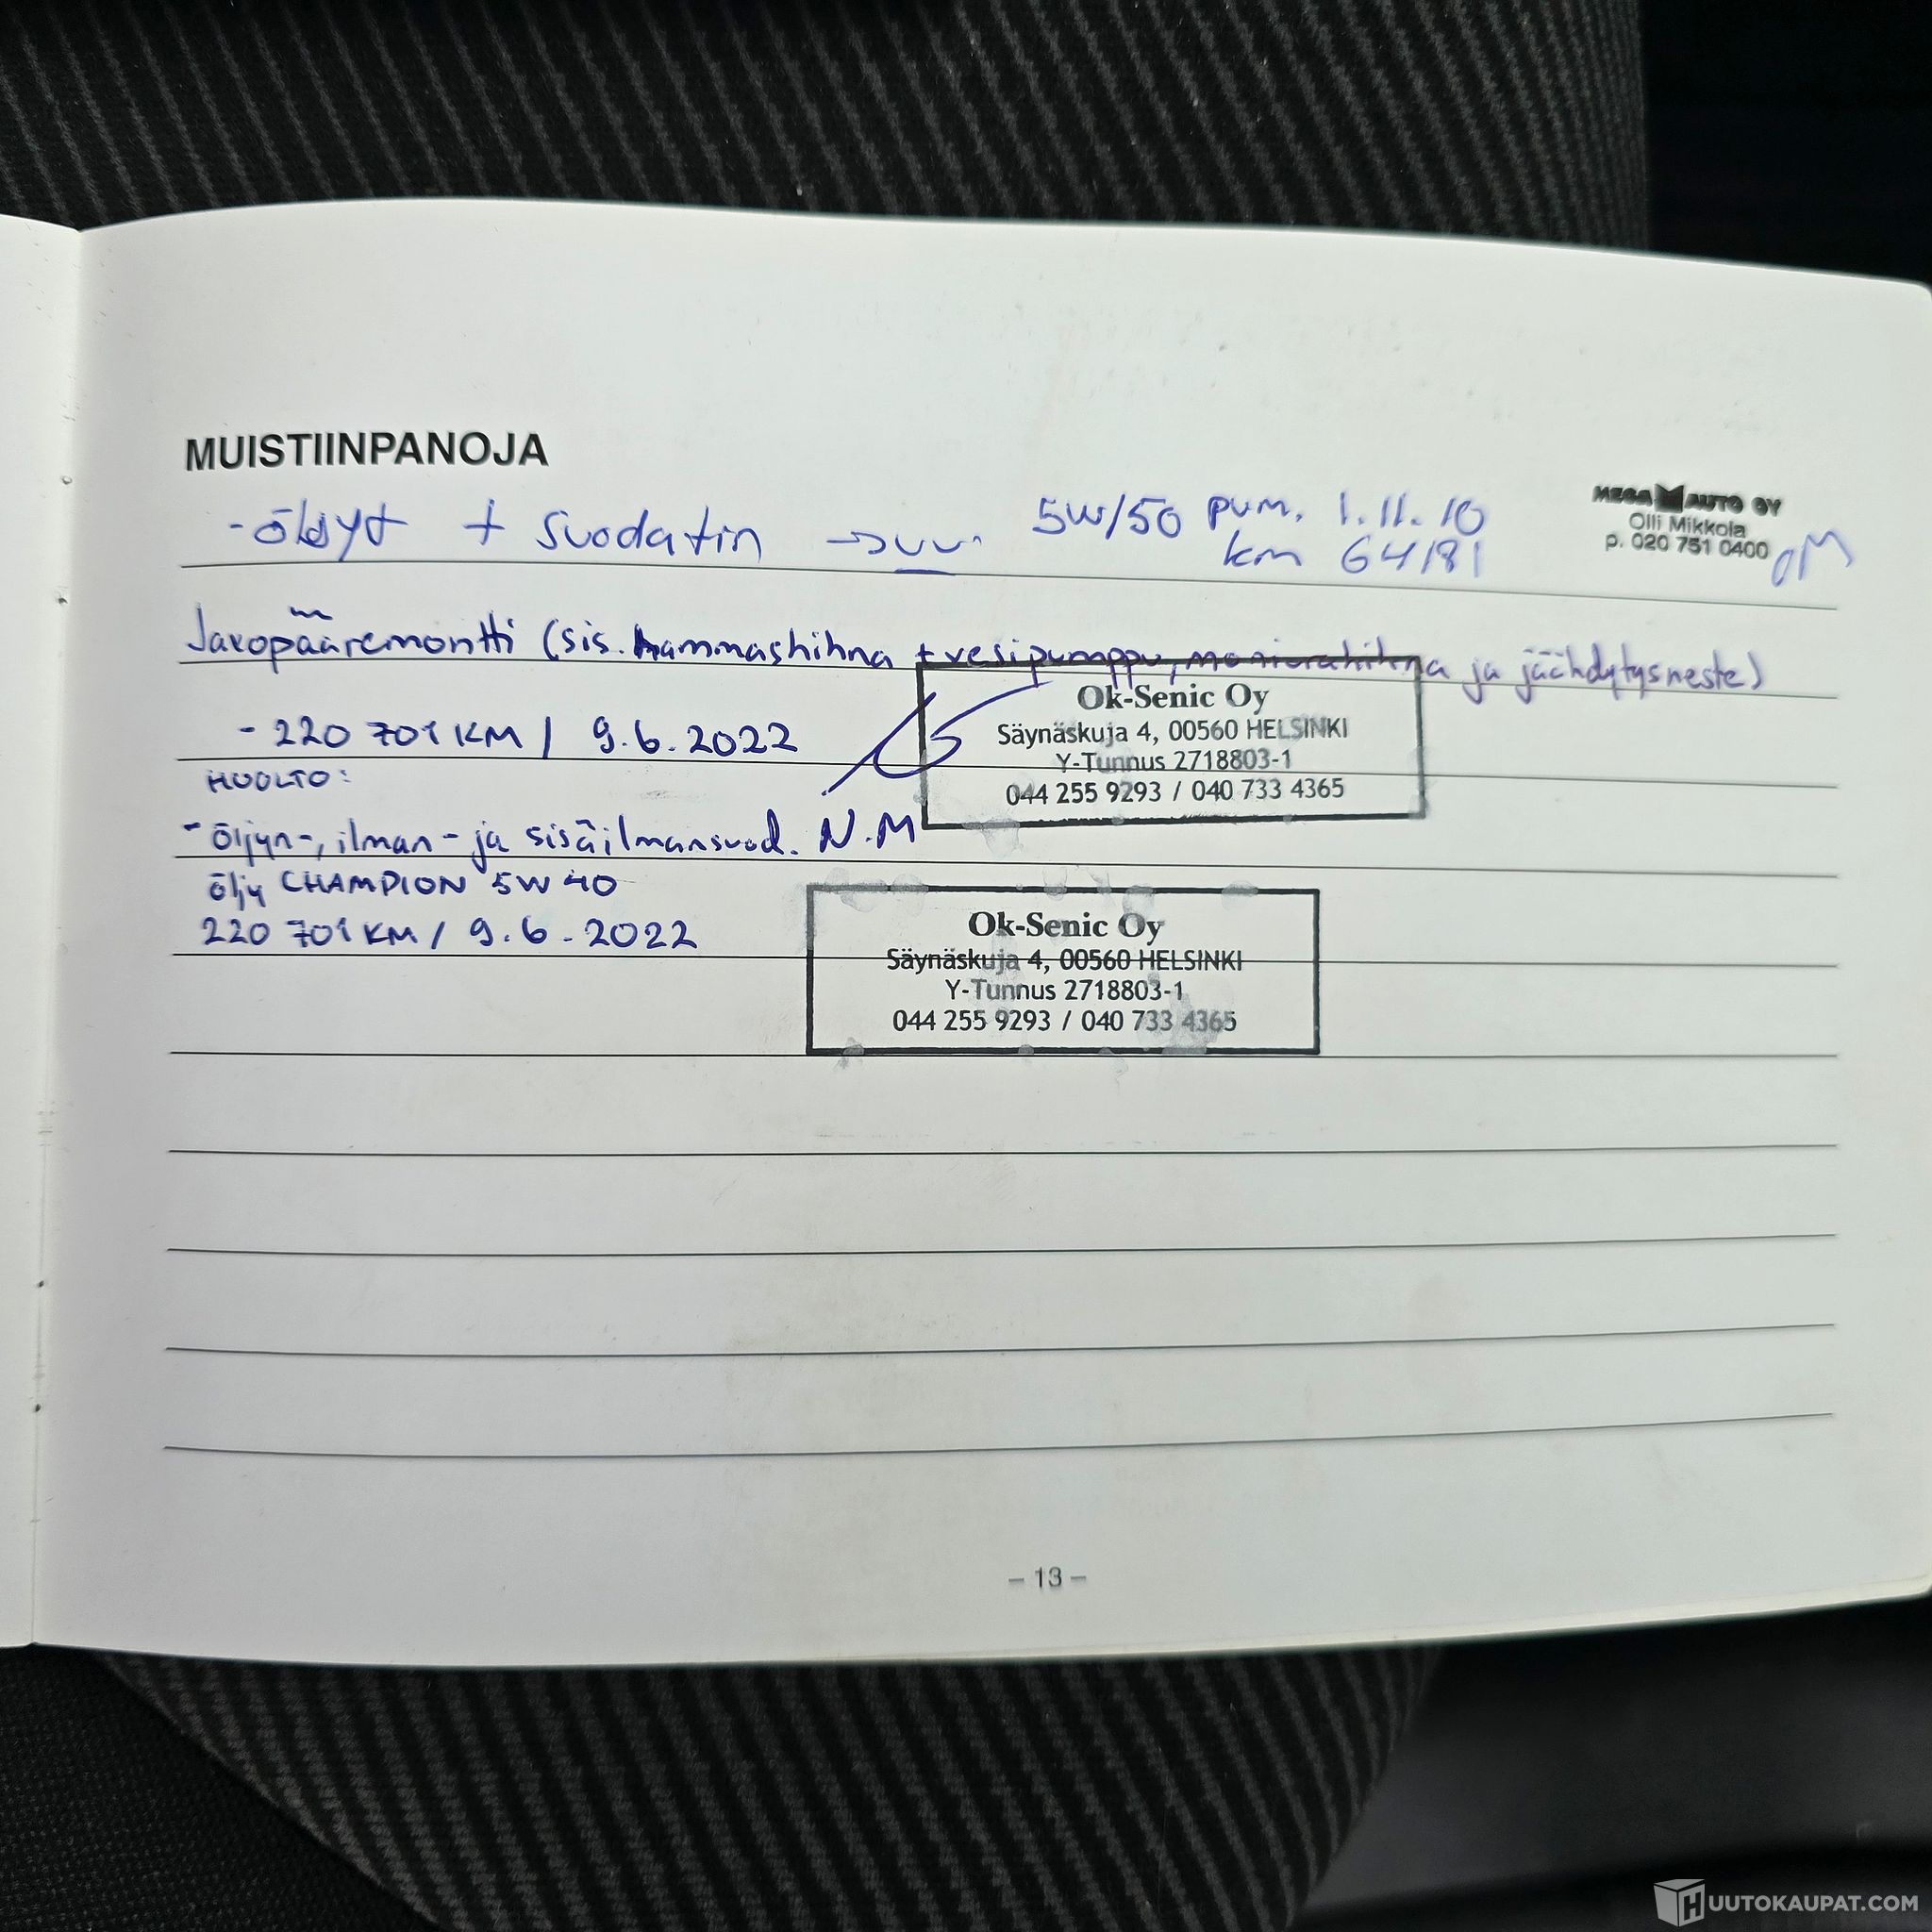 MUISTIINPANOJA
-öljyt + suodatin → uu. 5W/50 pvm. 1.11.10
km 64181
MEGA AUTO OY
Olli Mikkola
p. 020 751 0400 OM
Jakopääremontti (sis. hammashihna + vesipumppu, moniurahihna ja jäähdytysneste)
- 220 701 KM / 9.6.2022
Ok-Senic Oy
Säynäskuja 4, 00560 HELSINKI
Y-Tunnus 2718803-1
044 255 9293 / 040 733 4365
HUOLTO:
- Öljyn-, ilman- ja sisäilmansuod. N.M
öljy CHAMPION 5W40
220 701 KM / 9.6.2022
Ok-Senic Oy
Säynäskuja 4, 00560 HELSINKI
Y-Tunnus 2718803-1
044 255 9293 / 040 733 4365
- 13 -
HUUTOKAUPAT.COM